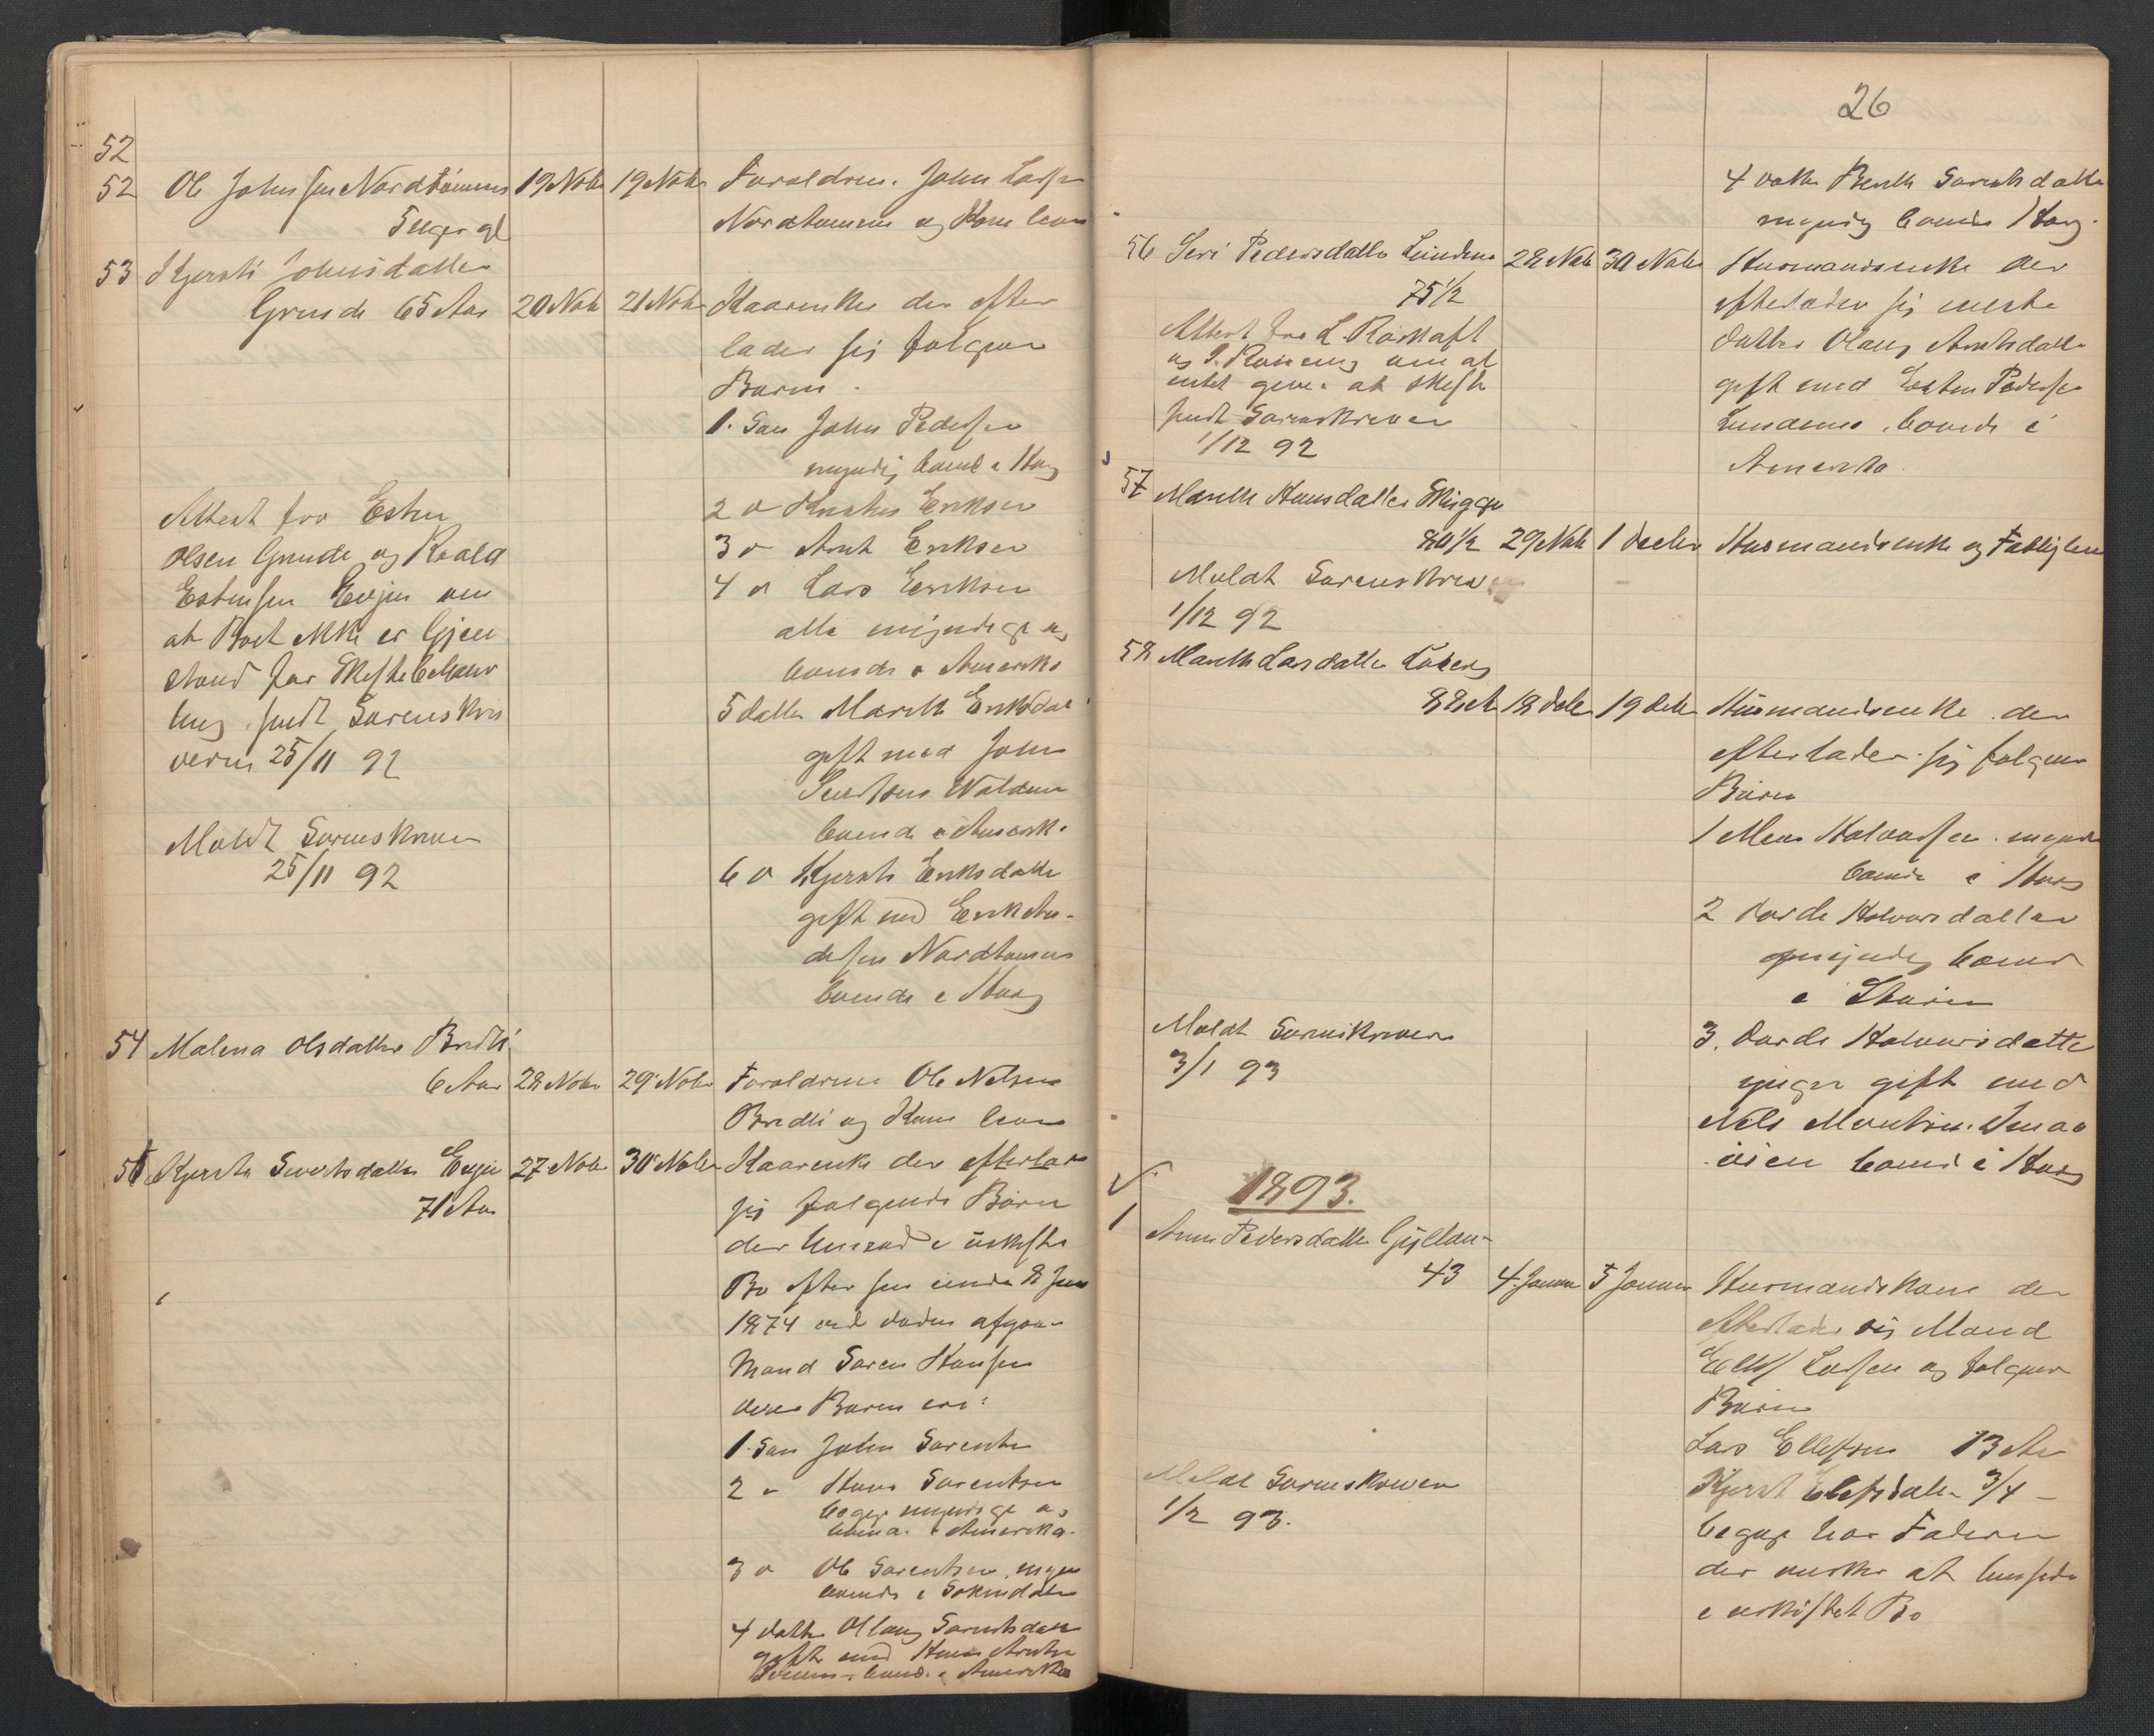 52
52 Ole Johnsen Nordtømme 19 Nobr 19 Nobr Foreldrene John Larsen
5 Uger gl Nordtømme og Kone
53 Kjersti Johnsdatter
Grinde 65 Aar 20 Nobr 21 Nobr Kaarenke der efter
lader sig følgene
Børn
1. Søn John Pedersen
myndig boend i Horg
2 " Eriksen
3 " Arnt Eriksen
4 " Lars Eriksen
alle myndige og
boende i Amerika
5 datter Marith Eriksdat
gift med John
Sivertsen
boend i Amerika
6 " Kjersti Eriksdatter
gift med Erik An-
dersen Nordtømme
boende i Horg
Attest fra Esten
Olsen Grinde og
Estensen Evjen om
at Boet ikke er Gjen
stand for Skiftebehand
ling sendt Sorenskri
veren 25/11 92
Meldt Sorenskriveren
25/11 92
54 Malena Olsdatter Bredli
6 Aar 28 Nobr 29 Nobr Foreldrene Ole Nelsen
Bredli og Kone
55 Kjersti Sivertsdatter Evjen 27 Nobr 30 Nobr Kaarenke der efterlar
71 Aar sig følgende Børn
der hensad i uskiftet
Bo efter sin under 8 Juni
1874 ved døden afgaae
Mand Søren Hansen
deres Børn ere:
1. Søn John Sørentsen
2 " Hans Sørentsen
begge myndige og
boende i Amerika.
3 " Ole Sørentsen, mynd
boende i Soknedalen
4 datter Ollaug Sørentsdatter
gift med Hans Arntsen
boend. i Amerika
26
4 datter Berith Sørentsdatter
myndig boende i Horg.
56 Siri Pedersdatter Lundem 28 Nobr 30 Nobr Husmandsenke der
75 1/2 efterlader sig eneste
datter Olaug Arntsdatter
gift med Esten Pedersen
boende i
Amerika
Attest fra L.
og om at
intet gives at skifte
sendt Sorenskriveren
1/12 92
57 Marith Hansdatter
80 1/2 29 Nobr 1 Decbr Husmandsenke og Fattiglem
Meldt Sorenskriv
1/12 92
58 Marith Larsdatter
88 Aar 18 Decbr 19 Decbr Husmandsenke der
efterlader sig følgene
Børn
1 Mens Halvorsen mynd
boende i Horg
2 Dorde Halvorsdatter
myndig boend
i Støren
3. Dorde Halvorsdatter
yngre gift med
Nils
øien boend i Horg
Meldt Sorenskriveren
3/1 93
1893.
1 Anne Pedersdatter
43 4 Januar 5 Januar Husmandskone der
efterlader sig Mand
Ellef Larsen og følgene
Børn
Lars Ellefsen 13 Aar
Kjersti Ellefsdatter 3/4 —
begge hos Faderen
der ønsker at hensidde
i uskiftet Bo
Meldt Sorenskriveren
1/2 93.